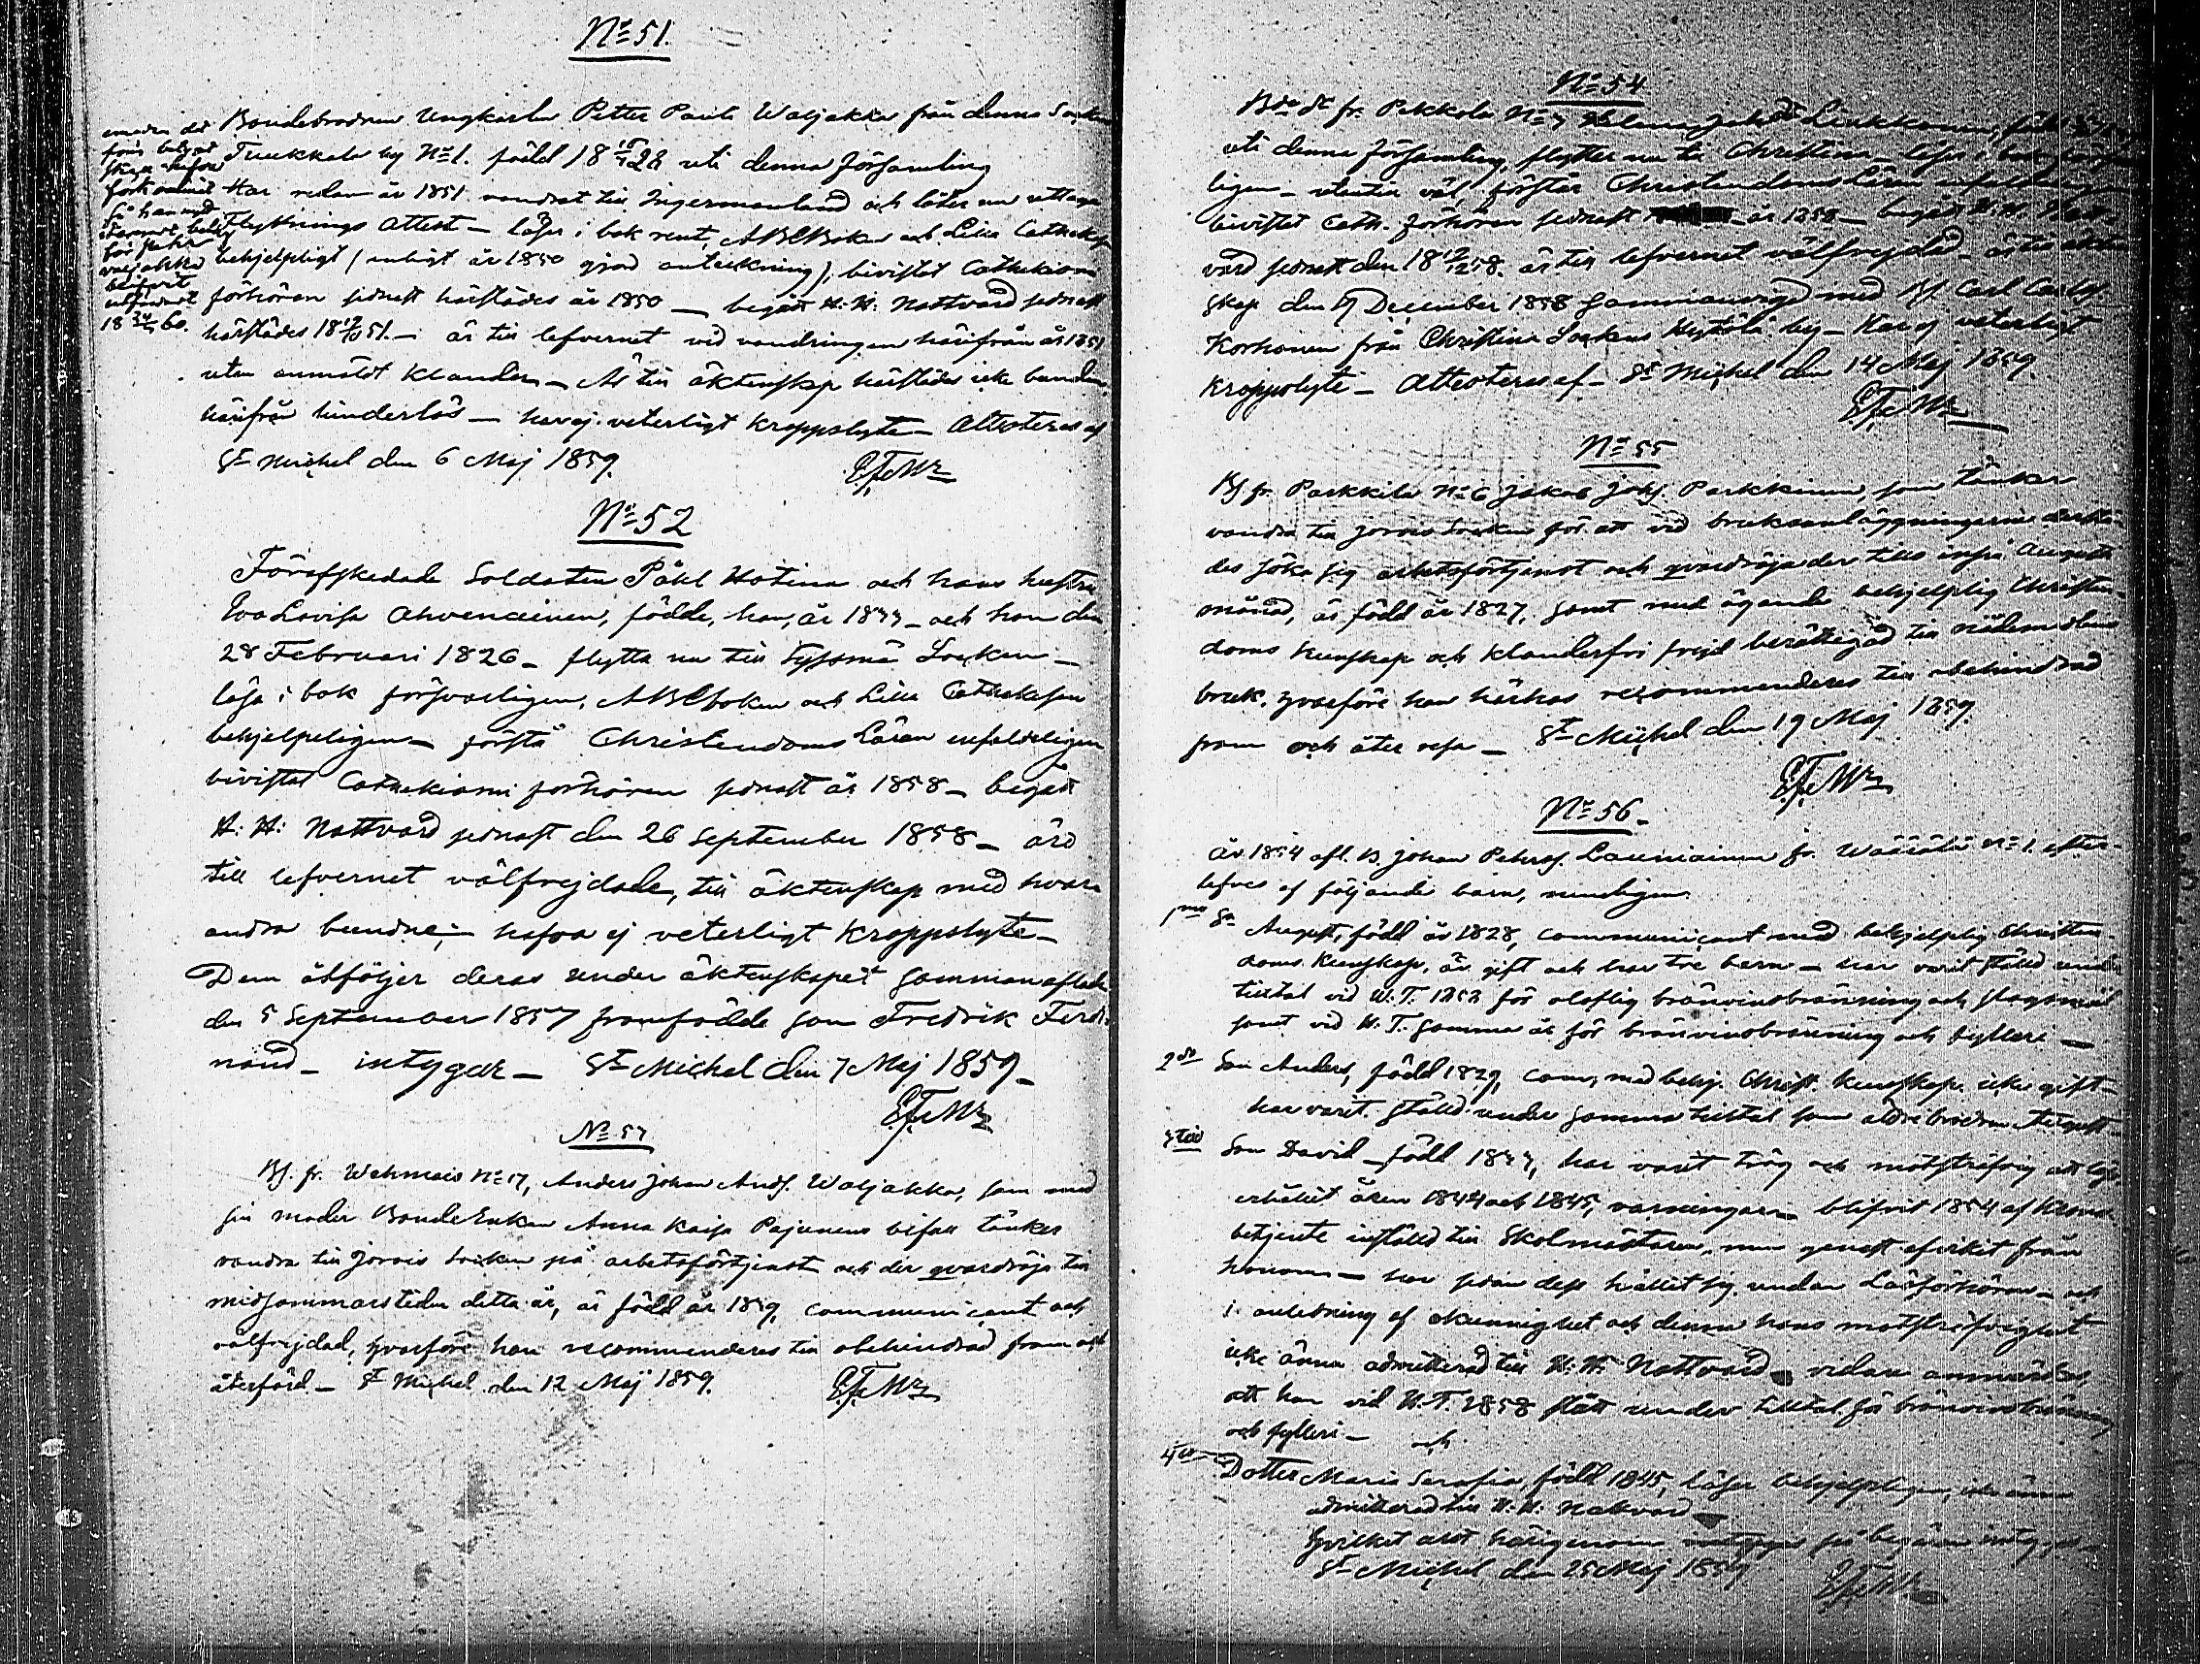 No 51.
Bondebrodren Ungkarlen Petter Paulss. Waljakka från denna Socken
Tuukkala by No 1. född 18 15/1 28 uti denna församling
Har redan år 1851 vandrat till Ingermanland och låter nu uttaga
flyttnings Attest – läser i bok rent, ABCBoken och Lilla Catheches
behjelpligt (enligt år 1850 gjord anteckning), bivistat Cathekismi
förhören sednast härstädes år 1850 – begått H: H: Nattvard sednast
härstädes 18 51. – är till lefvernet vid vandringen härifrån år 1851
utan anmäldt klander – Är till äktenskap härstädes icke bunden
härifrån hinderlös – har ej veterligt kroppslyte – Attesteras af
St Michel den 6 Maj 1859.
18 60.
No 52
Förafskedade Soldaten Påhl Hotinen och hans hustru
Eva Lovisa Ahvenainen, födde, han, år 1833 – och hon den
28 Februari 1826 – flytta nu till Sysmä Socken –
läsa i bok försvarligen, ABCboken och Lilla Cathekesen
behjelpeligen – förstå Christendoms Läran enfaldeligen
bivistat Cathekismi förhören sednast år 1858 – begått
H: H: Nattvard sednast den 26 September 1858 – äro
till lefvernet välfrejdade, till äktenskap med hvar
andra bundne; – hafva ej veterligt kroppslyte –
Dem åtföljer deras under äktenskapet sammanaflade
den 5 September 1857 framfödde son Fredrik Ferdi-
nand – intygar – St Michel den 7 Maj 1859 –
No 53
Bs. fr. Wehmais No 17, Anders Johan Ands. Waljakka, som med
sin moder BondeEnkan Anna Kaisa Pajunens bifall tänker
vandra till Jorois Socken på arbetsförtjenst och der qvardröja till
midsommarstiden detta år, är född år 1839, communicant och
välfrejdad, hvarföre han recommenderas till obehindrad fram och
återfärd – St Michel den 12 Maj 1859.
No 54
Bde dr fr. Pekkola No 7 Helena Johsdr Liukkonen, född
uti denna församling, flyttar nu till Christina – läser i bok försvar
ligen – utantill väl, förstår Christendoms Läran enfaldeligen
bivistat Cath. förhören sednast år 1858 – begått H. H. Natt-
vard sednast den 18 12/12 58. är till lefvernet välfrejdad – är till äkten
skap den 17 December 1858 sammanvigd med Bs. Carl Carls.
Korhonen från Christina Sockens by – Har ej veterligt
kroppslyte – Attesteras af – St Michel den 14 Maj 1859.
No 55
Bs fr. Parkkila No 6 Jakob Johs. Parkkinen, som tänker
vandra till Jorois Socken för att vid bruksanläggningarne derstä-
des söka sig arbetsförtjenst och qvardröja der tills inpå Augusti
månad, är född år 1827, samt med ägande behjelplig Christen-
doms kunskap och klanderfri frejd berättigad till nådemedlens
bruk, hvarföre han härhos recommenderas till obehindrad
fram och åter resa – St Michel den 19 Maj 1859.
No 56 –
År 1854 afl. B. Johan Petters. Launiainen fr. Wäärälä No 1. efter-
lefves af följande barn, nemligen.
1mo Sn August, född år 1828, communicant med behjelplig Christen
doms kunskap, är gift och har tre barn – har varit ställd under
tilltal vid W. T. 1852 för oloflig bränvinsbränning och slagsmål
samt vid H. T. samma år för bränvinsbränning och fylleri –
2do Son Anders, född 1829, com, med behj. Christ. kunskap. icke gift –
har varit ställd under samma tilltal som äldre brodren August –
3tio Son David – född 1833, har varit trög och motsträfvig att läsa
erhållit åren 1844 och 1845, varningar – blifvit 1854 af Krono-
betjente inställd till Skolmästaren, men genast afvikit från
honom – har sedan dess hållit sig undan Läsförhören – och
i anledning af okunnighet och denna hans motsträfvighet
icke ännu admitterad till H. H. Nattvard – vidare anmärkes,
att han vid H. T. 1858 stått under tilltal för bränvinsbränning
och fylleri – och
4to Dotter Maria Serafia, född 1845, läser behjelpligen, icke ännu
admitterad till H. H. Nattvard
hvilket allt härigenom på begäran intygas –
St Michel den 25 Maj 1859